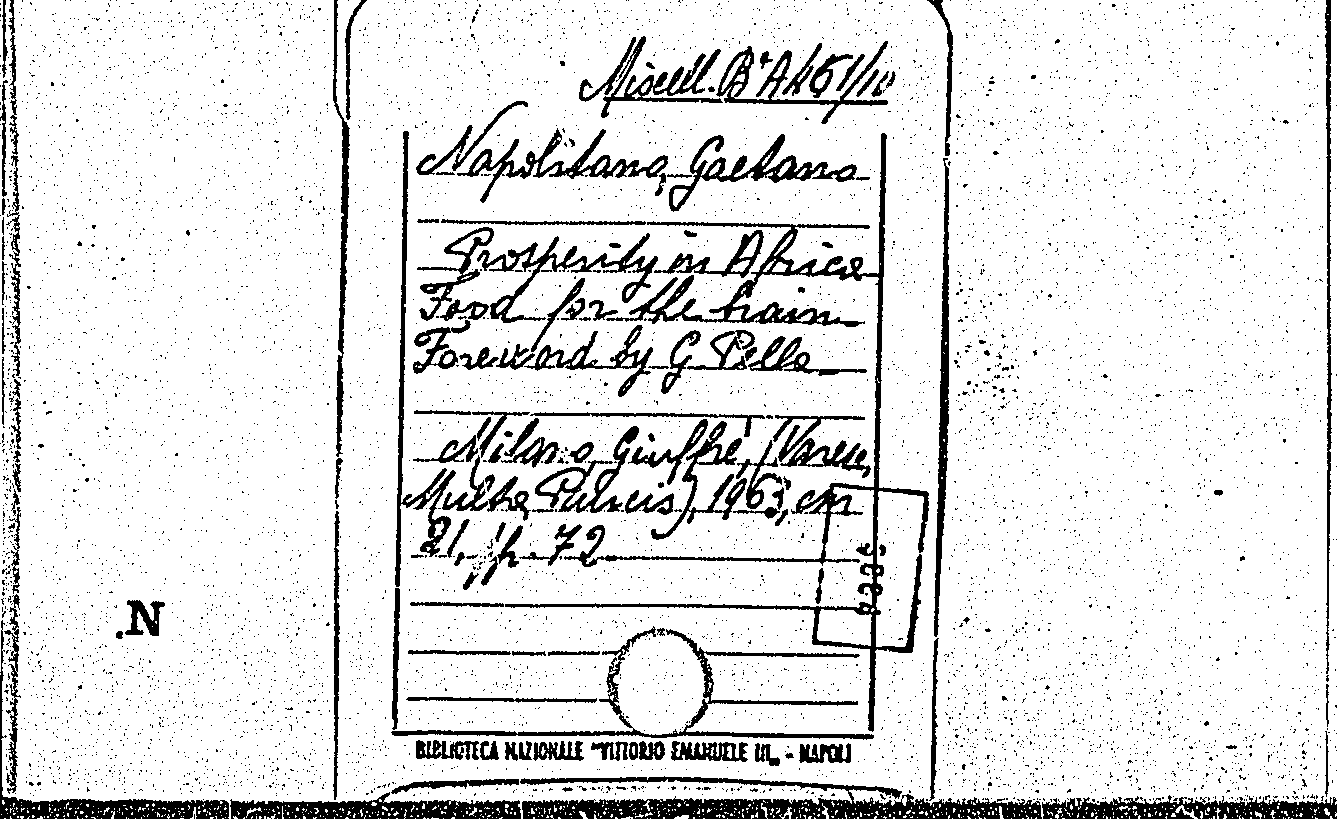 Miscell. Bª A 451/10
Napolitano, Gaetano
Prosperity in Africa
Food for the brain
Foreword by G Pella
Milano, Giuffrè, (Varese,
Multa Paucis), 1963, cm
21, p. 72
.N
BIBLIOTECA NAZIONALE "VITTORIO EMANUELE III„ - NAPOLI